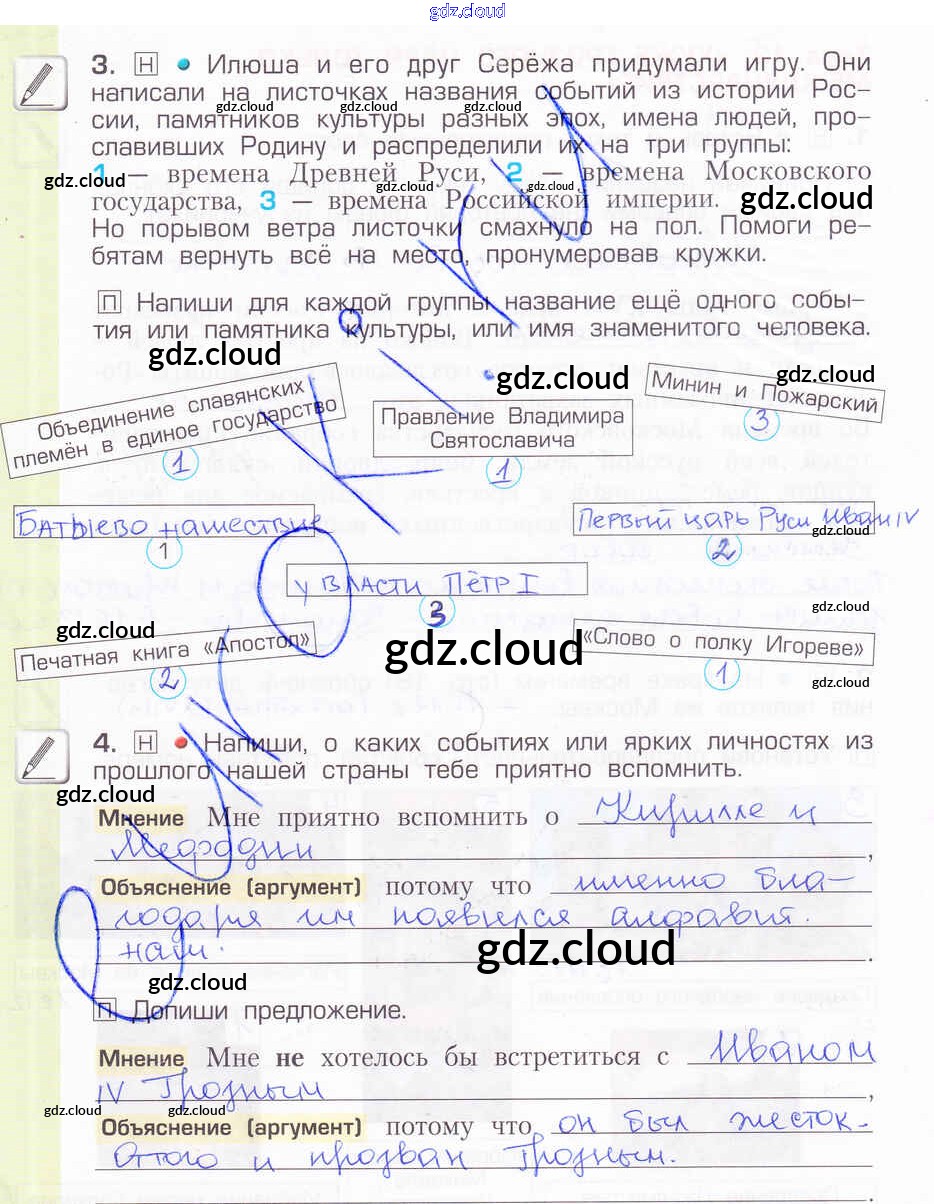 gdz.cloud
3. Н • Илюша и его друг Серёжа придумали игру. Они
написали на листочках названия событий из истории Рос-
gdz.cloud gdz.cloud gdz.cloud
сии, памятников культуры разных эпох, имена людей, про-
славивших Родину и распределили их на три группы:
1 — времена Древней Руси, 2 — времена Московского
gdz.cloud gdz.cloud gdz.cloud gdz.cloud
государства, 3 — времена Российской империи.
Но порывом ветра листочки смахнуло на пол. Помоги ре-
бятам вернуть всё на место, пронумеровав кружки.
П Напиши для каждой группы название ещё одного собы-
тия или памятника культуры, или имя знаменитого человека.
gdz.cloud
gdz.cloud gdz.cloud
Объединение славянских
племён в единое государство
1
Правление Владимира
Святославича
1
Минин и Пожарский
3
Батыево нашествие
1
Первый царь Руси Иван IV
2
у власти Пётр I
3
gdz.cloud
gdz.cloud
gdz.cloud
Печатная книга «Апостол»
2
«Слово о полку Игореве»
1
gdz.cloud
4. Н • Напиши, о каких событиях или ярких личностях из
прошлого нашей страны тебе приятно вспомнить.
gdz.cloud
Мнение Мне приятно вспомнить о Кирилле и
Мефодии,
Объяснение (аргумент) потому что именно бла-
годаря им появился алфавит.
наш.
gdz.cloud
gdz.cloud
П Допиши предложение.
Мнение Мне не хотелось бы встретиться с Иваном
IV Грозным,
gdz.cloud gdz.cloud gdz.cloud
Объяснение (аргумент) потому что он был жесток.
Оттого и прозван Грозным.